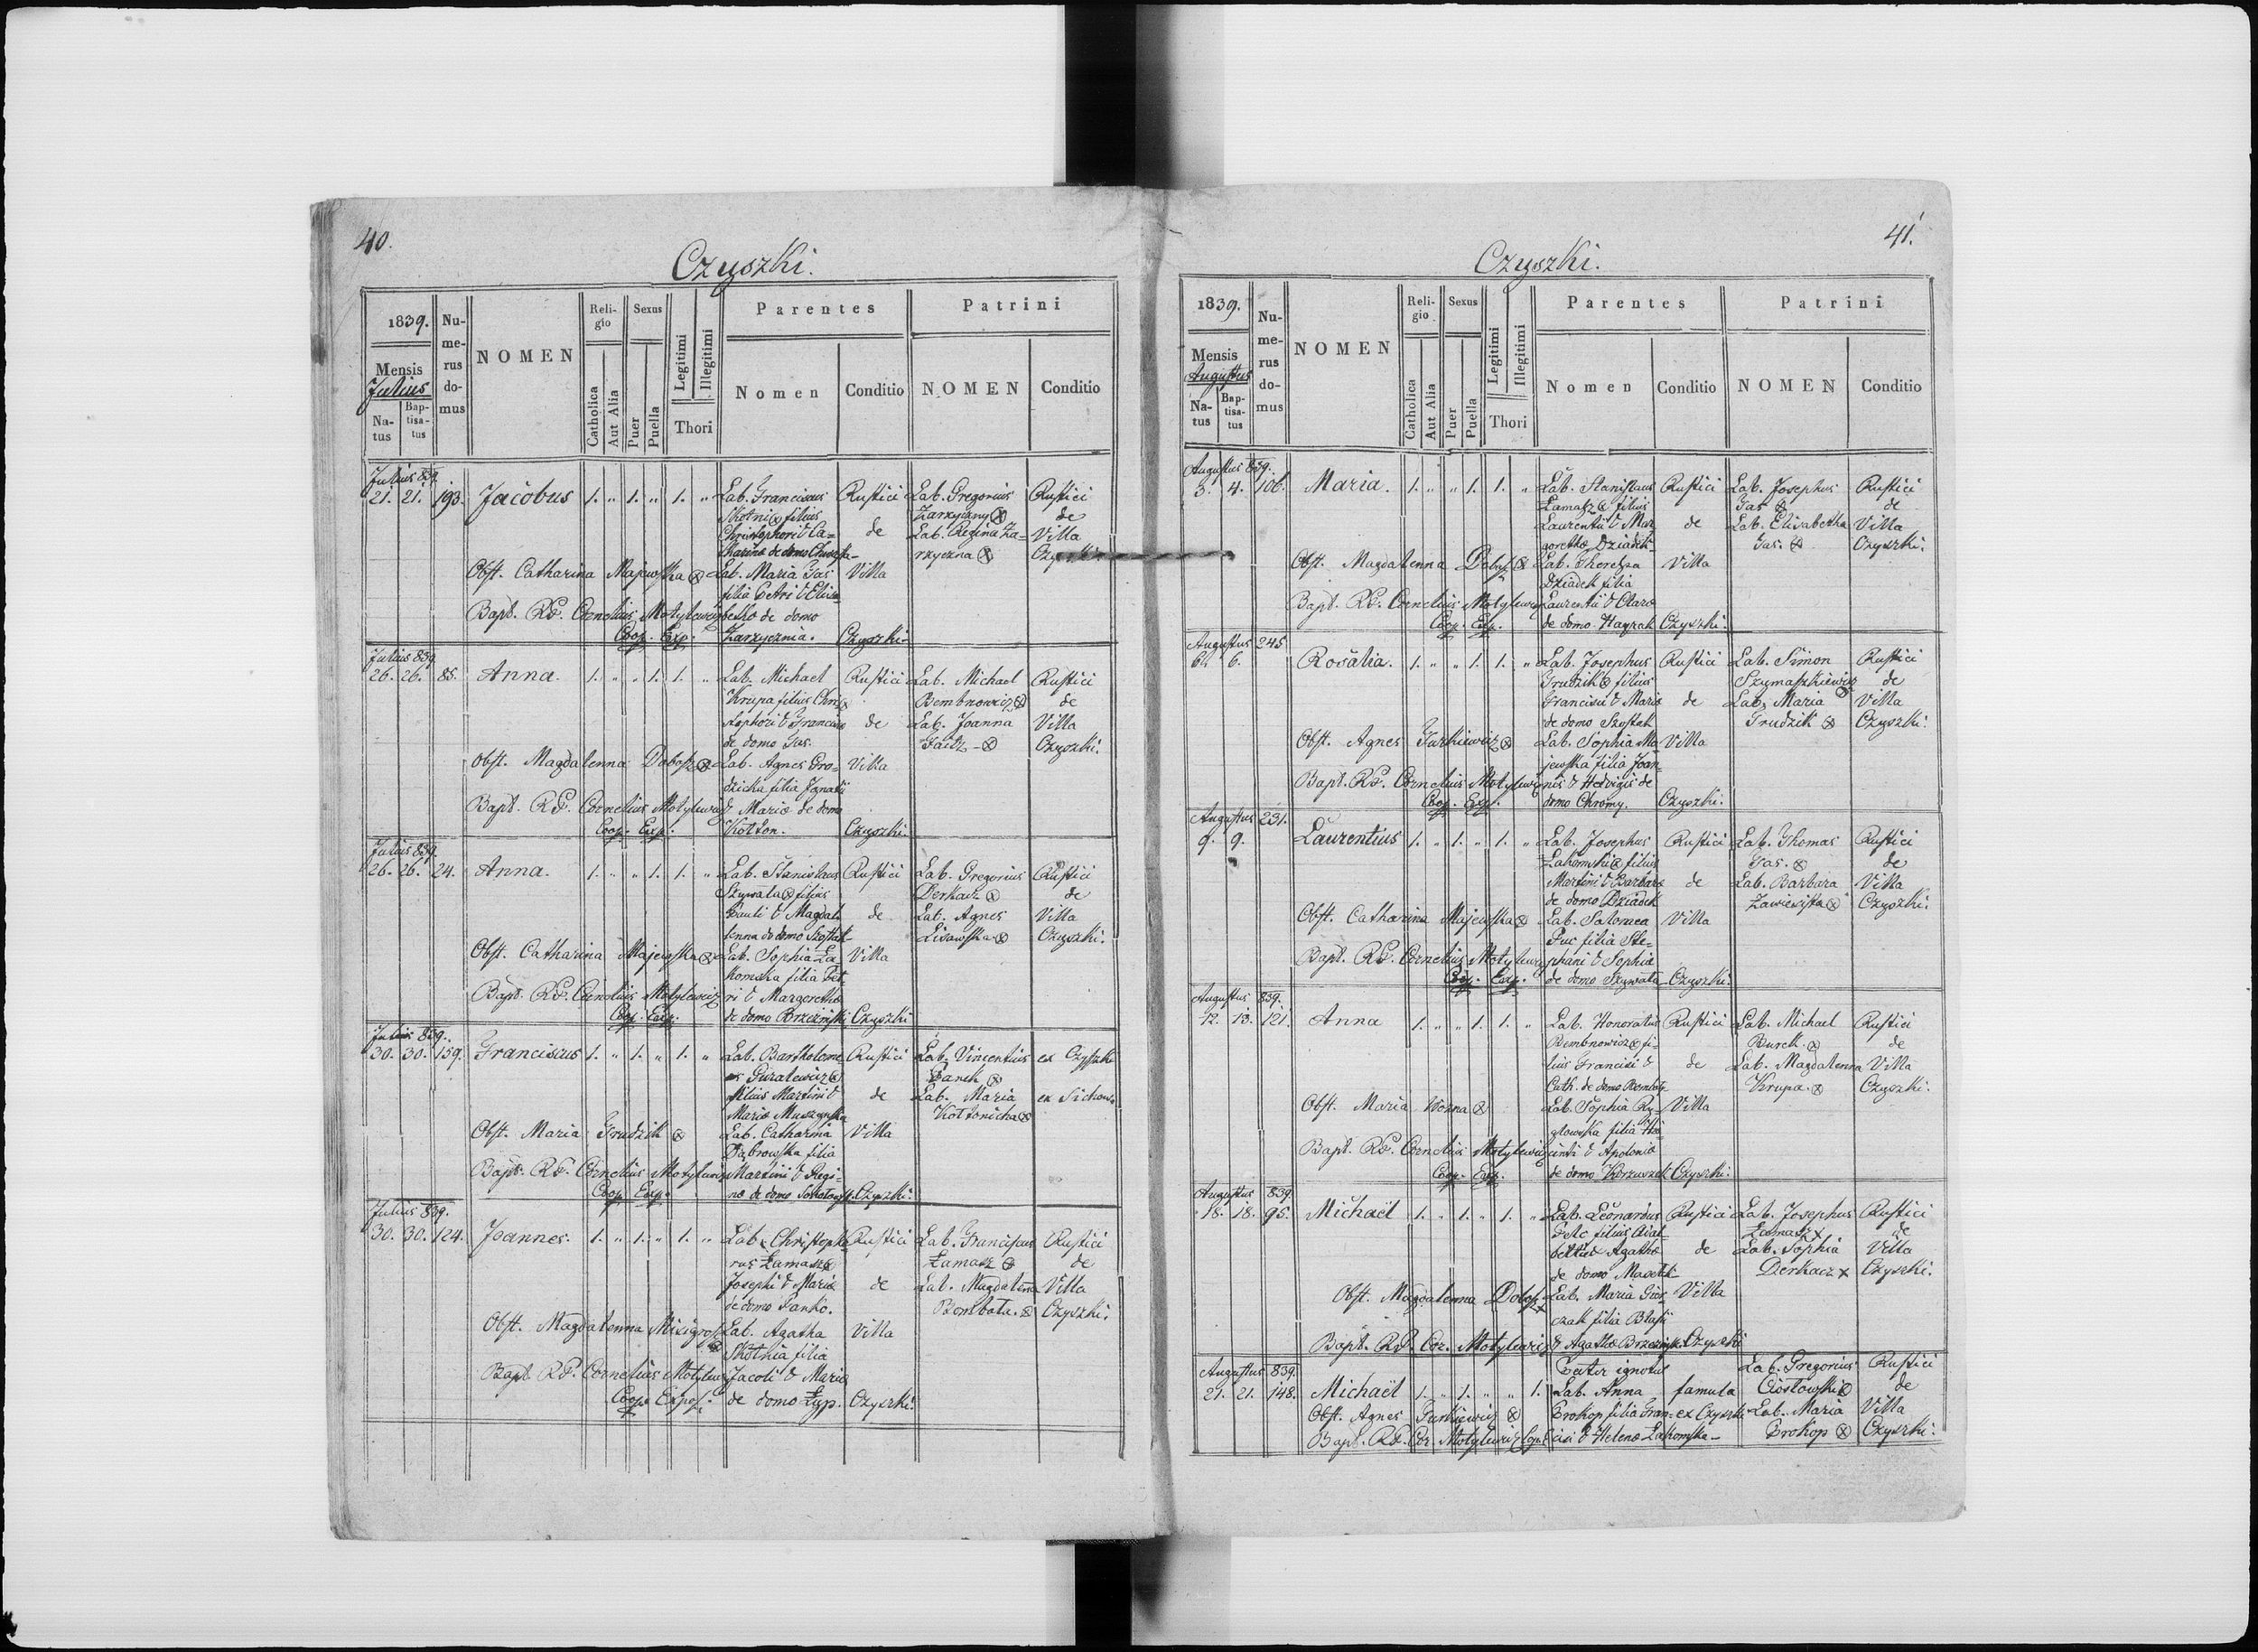 40.
Czyszki.
1839.
Mensis
Julius
Na-
tus
Bap-
tisa-
tus
Nu-
me-
rus
do-
mus
NOMEN
Reli-
gio
Catholica
Aut Alia
Sexus
Puer
Puella
Legitimi
Illegitimi
Thori
Parentes
Nomen
Conditio
Patrini
NOMEN
Conditio
Julius 839.
21. 21. 193. Jacobus 1. " 1. " 1. " Lab. Franciscus Rustici Lab. Gregorius Rustici
Skotni filius Zarzyczny de
Christophori & Ca- de Lab. Regina Za- Villa
tharinæ de domo rzyczna
Obst. Catharina Majewska Lab. Maria Jas Villa
filia Petri & Elisa-
Bapt. RP. Cornelius Motylewicz bethæ de domo
Coop. Exp. Zarzycznia. Czyszki
Julius 839.
26. 26. 85. Anna. 1. " " 1. 1. " Lab. Michael Rustici Lab. Michael Rustici
Krupa filius Chri- Bembnowicz de
stophori & de Lab. Joanna Villa
de domo Jas. Czyszki.
Obst. Magdalenna Dobosz Lab. Agnes Gro- Villa
dzicka filia Ignatii
Bapt. RP. Cornelius Motylewicz & Mariæ de domo
Coop. Exp. Kotton. Czyszki
Julius 839.
26. 26. 24. Anna. 1. " " 1. 1. " Lab. Stanislaus Rustici Lab. Gregorius Rustici
Szywala filius Derkacz de
Pauli & Magda- de Lab. Agnes Villa
lenna de domo Szostak Lisowska Czyszki.
Obst. Catharina Majewska Lab. Sophia Za- Villa
komska filia Pet-
Bapt. RP. Cornelius Motylewicz ri & Margerethæ
Coop. Exp. de domo Brzezinski Czyszki
Julius 839.
30. 30. 159. Franciscus 1. " 1. " 1. " Lab. Bartholome Rustici Lab. Vincentius ex Czyszki
us Guralewicz Panek
filius Martini & de Lab. Maria ex Sichow
Mariæ Muszynska Kottonicha
Obst. Maria Grudzik Lab. Catharina Villa
Dąbrowska filia
Bapt. RP. Cornelius Motylewicz Martini & Regi-
Coop. Exp. næ de domo Czyszki.
Julius 839.
30. 30. 124. Joannes. 1. " 1. " 1. " Lab. Christopho- Rustici Lab. Franciscus Rustici
rus Łamasz Łamasz de
Josephi & Mariæ de Lab. Magdalena Villa
de domo Panko. Bembata. Czyszki.
Obst. Magdalenna Lab. Agatha Villa
Skotnia filia
Bapt RP. Cornelius Motylewicz Jacobi & Mariæ
Coop. Expos. de domo Łyp. Czyszki.
41.
Czyszki.
1839.
Mensis
Augustus
Na-
tus
Bap-
tisa-
tus
Nu-
me-
rus
do-
mus
NOMEN
Reli-
gio
Catholica
Aut Alia
Sexus
Puer
Puella
Legitimi
Illegitimi
Thori
Parentes
Nomen
Conditio
Patrini
NOMEN
Conditio
Augustus 839.
3. 4. 106. Maria. 1. " " 1. 1. " Lab. Stanislaus Rustici Lab. Josephus Rustici
Łamasz filius Jas de
Laurentii & Mar- de Lab. Elisabetha Villa
garethæ Dziadek Jas. Czyszki.
Obst. Magdalenna Dobosz Lab. Theressa Villa
Dziadek filia
Bapt. RP. Cornelius Motylewicz Laurentii & Claræ
Coop. Exp. de domo Czyszki.
Augustus 245
6. 6. Rosalia. 1. " " 1. 1. " Lab. Josephus Rustici Lab. Simon Rustici
Grudzik filius Szymaszkiewicz de
Francisci & Mariæ de Lab. Maria Villa
de domo Szostak Grudzik Czyszki.
Obst. Agnes Turkiewicz Lab. Sophia Ma- Villa
jewska filia Joan-
Bapt. RP. Cornelius Motylewicz nis & Hedvigis de
Coop. Exp. domo Chromy. Czyszki.
Augustus 231.
9. 9. Laurentius 1. " 1. " 1. " Lab. Josephus Rustici Lab. Thomas Rustici
Zakomski filius Jas. de
Martini & Barbaræ de Lab. Barbara Villa
de domo Dziadek Zawiejska Czyszki.
Obst. Catharina Majewska Lab. Salomea Villa
Puc filia Ste-
Bapt. RP. Cornelius Motylewicz phani & Sophia
Coop. Exp. de domo Szywala Czyszki.
Augustus 839.
12. 13. 121. Anna 1. " " 1. 1. " Lab. Honoratus Rustici Lab. Michael Rustici
Bembnowicz fi- Burek de
lius Francisci & de Lab. Magdalenna Villa
Cath. de domo Krupa. Czyszki.
Obst. Maria Wozna Lab. Sophia Ry- Villa
glowska filia
Bapt. RP. Cornelius Motylewicz cinti & Apoloniæ
Coop. Exp. de domo Czyszki.
Augustus 839.
18. 18. 95. Michaël 1. " 1. " 1. " Lab. Leonardus Rustici Lab. Josephus Rustici
filius Adal- Łamasz x de
berti & Agathæ de Lab. Sophia Villa
de domo Derkacz x Czyszki.
Obst. Magdalenna Dobosz x Lab. Maria Villa
czak filia Blasii
Bapt. RP. Cor. Motylewicz & Agathæ Czyszki
Augustus 839. Pater ignotus Lab. Gregorius Rustici
21. 21. 148. Michaël 1. " 1. " " 1. Lab. Anna famula Ciostowski de
Obst. Agnes Turkiewicz Prokop filia Fran- ex Czyszki Lab. Maria Villa
Bapt. RP. Cor. Motylewicz Cop. cisi & Helenæ Zakomska Prokop Czyszki.